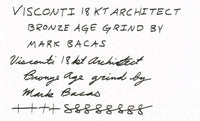 VISCONTI 18 KT ARCHITECT
BRONZE AGE GRIND BY
MARK BACAS
Visconti 18kt Architect
Bronze Age grind by
Mark Bacas